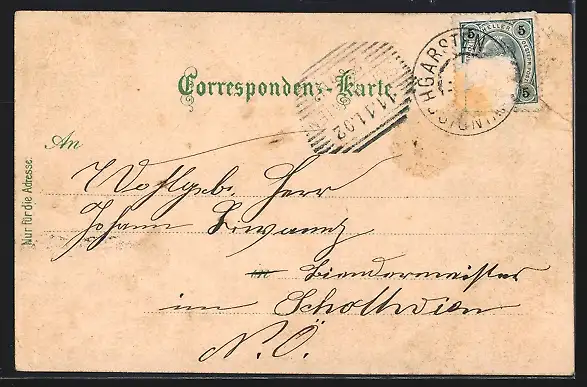 5 HELLER 5
5
WINDISCHGARSTEN
Correspondenz-Karte.
11.11.02
An
Wohlgeb. Herr
Johann
in
im Schottwien
N.Ö.
Nur für die Adresse.